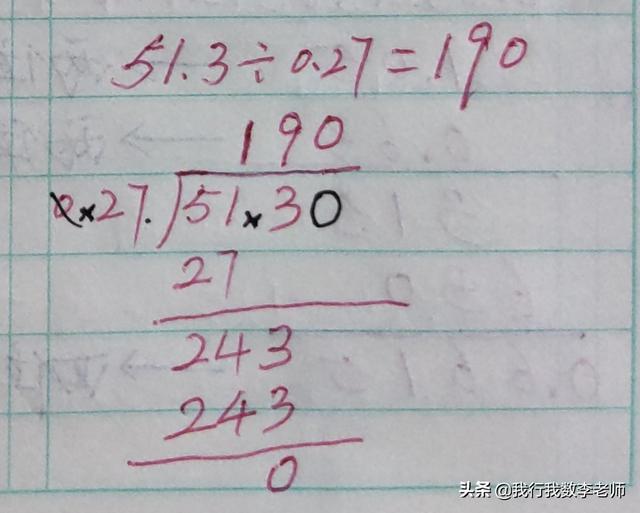 51.3÷0.27=190
190
0.27.)51.30
27
243
243
0
头条 @我行我数李老师